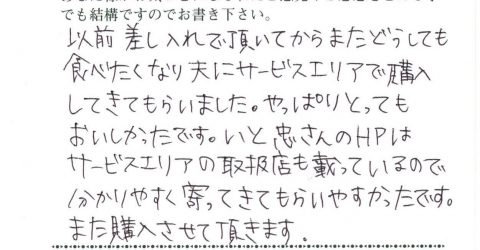 でも結構ですのでお書き下さい。
以前差し入れで頂いてからまたどうしても
食べたくなり夫にサービスエリアで購入
してきてもらいました。やっぱりとっても
おいしかったです。いと忠さんのHPは
サービスエリアの取扱店も載っているので
分かりやすく寄ってきてもらいやすかったです。
また購入させて頂きます。